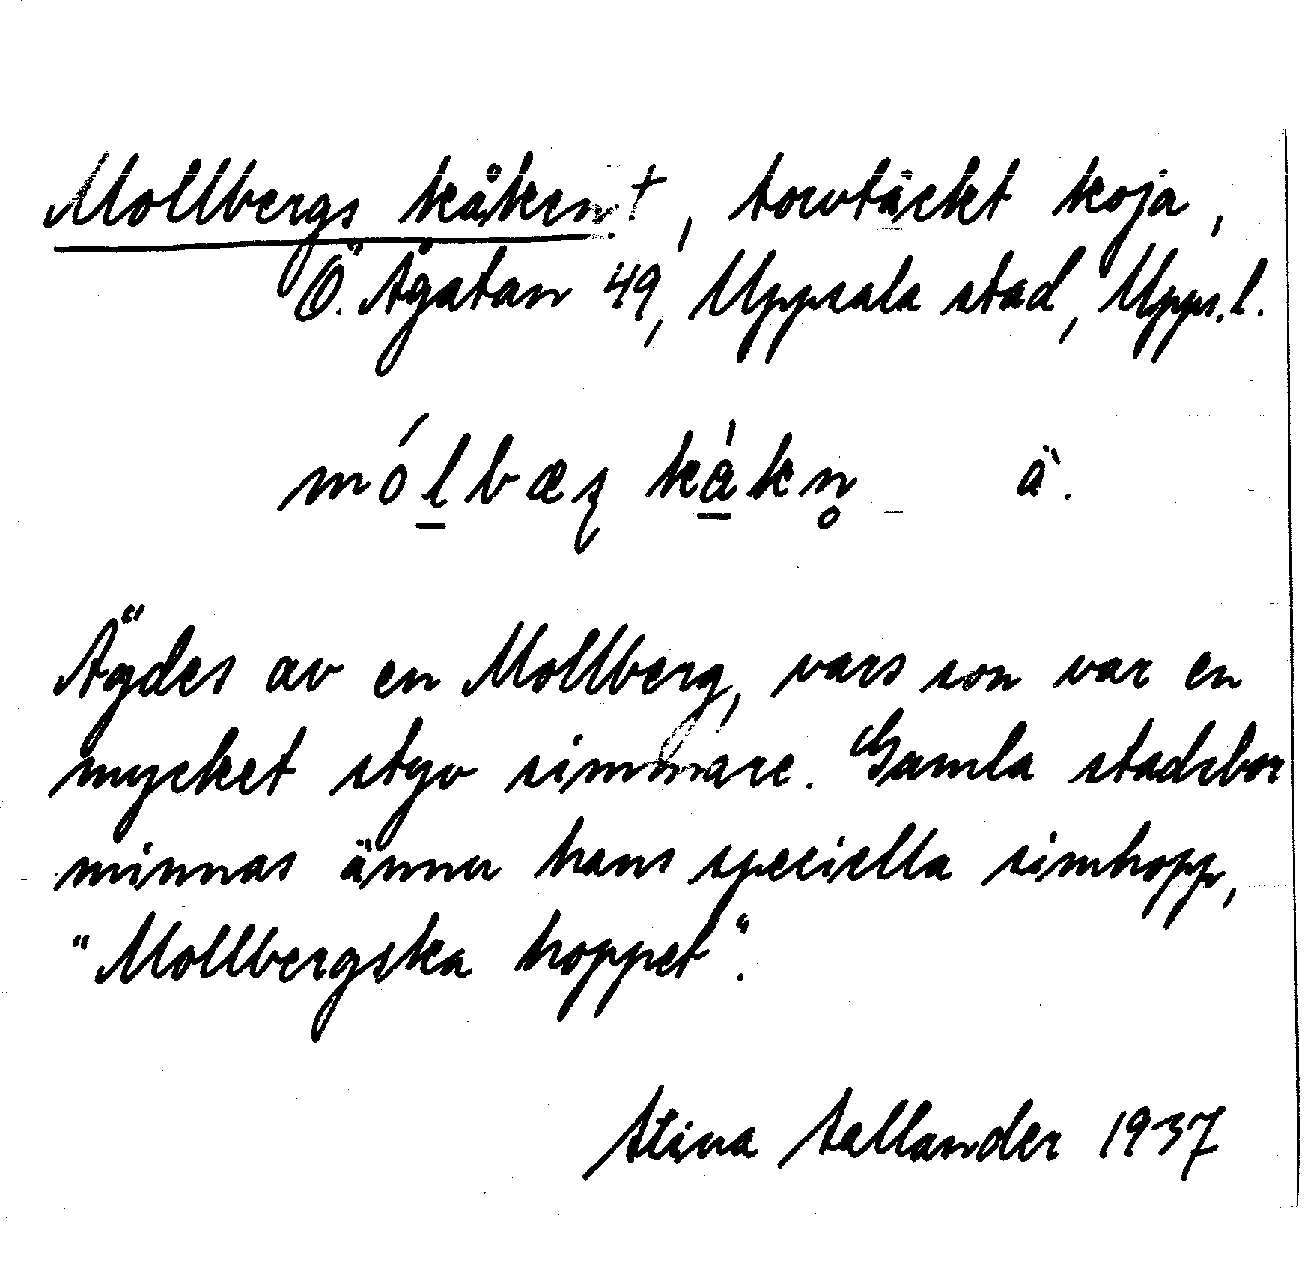 Mollbergs kåken †, torvtäckt koja,
Ö. Ågatan 49, Uppsala stad, Uppl.
mólbæʂ kåkn̥ ä.
Ägdes av en Mollberg, vars son var en
mycket styv simmare. Gamla stadsbor
minnas ännu hans speciella simhopp,
"Mollbergska hoppet".
Stina Sallander 1937